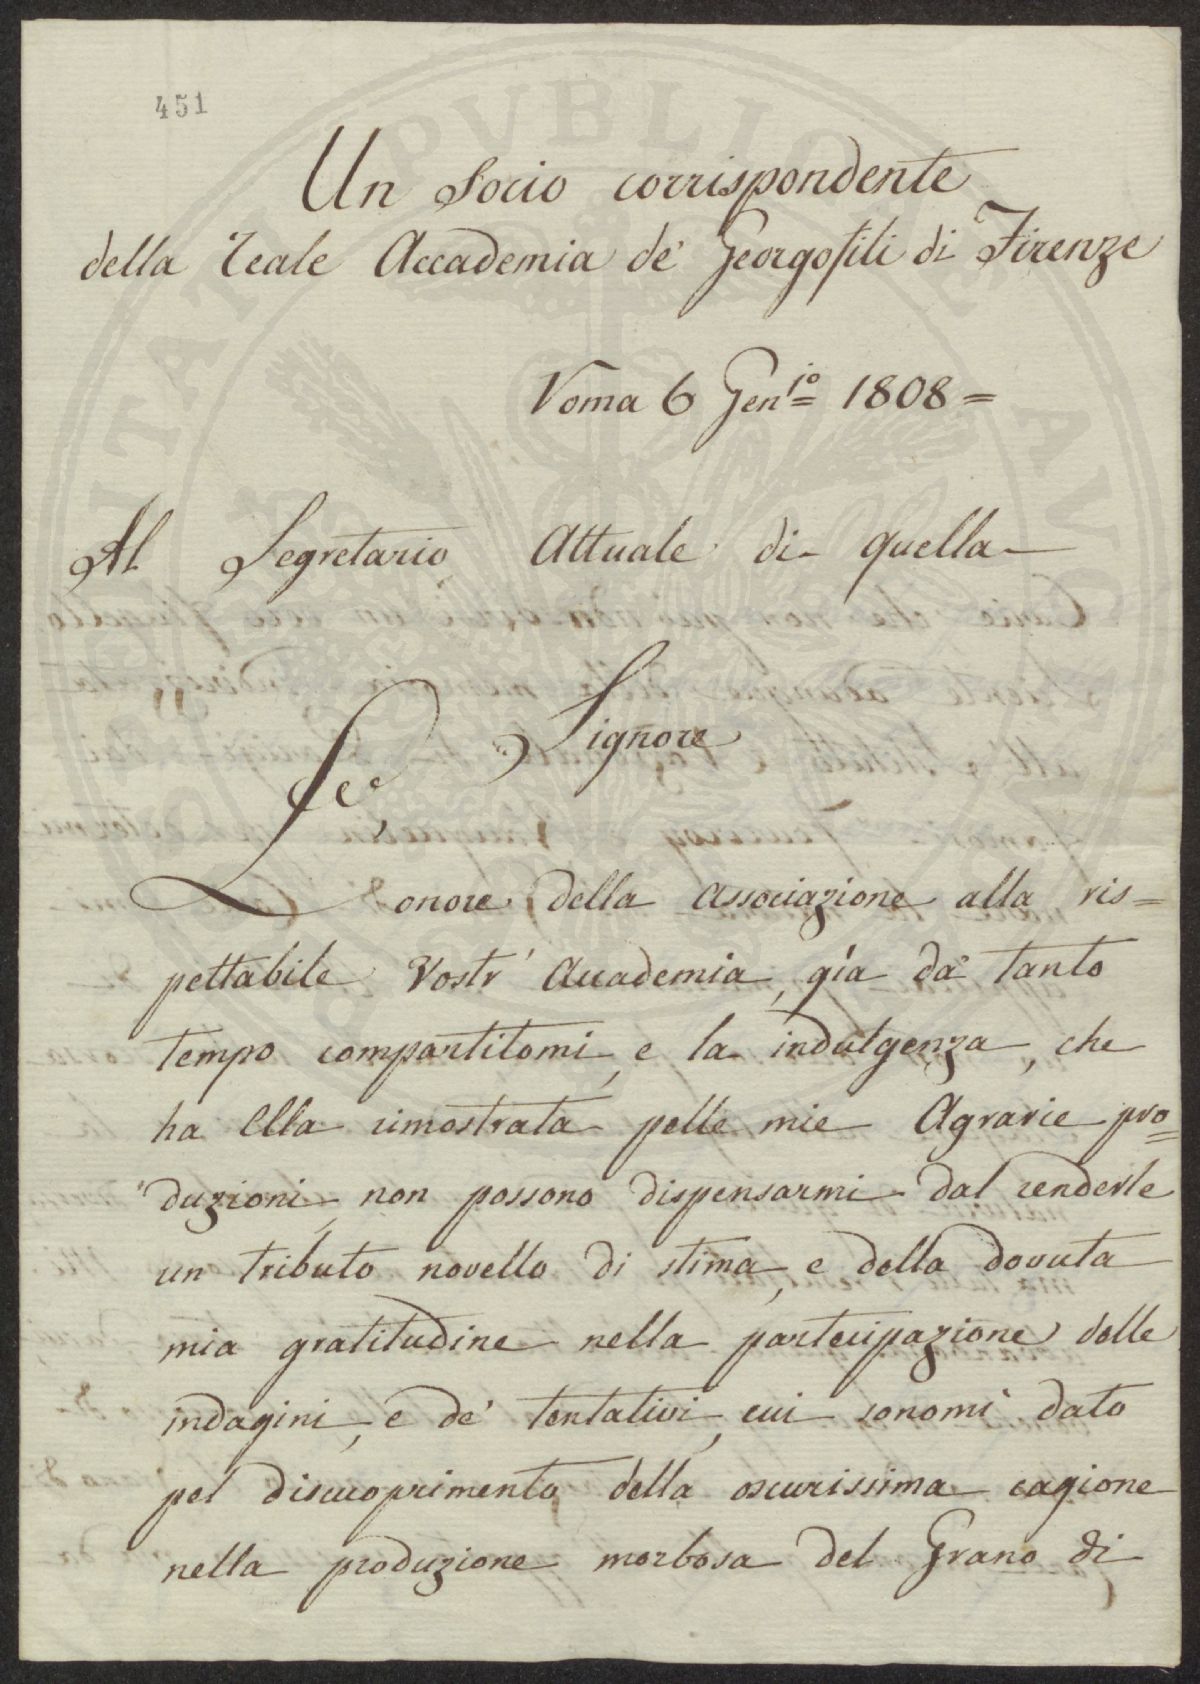 451
Un Socio corrispondente
della reale Accademia de' Georgofili di Firenze
Roma 6 Gen.io 1808 =
Al Segretario Attuale di quella
Signore
Se
L'onore della associazione alla ris=
pettabile Vostr' Accademia, già da tanto
tempo compartitomi, e la indulgenza, che
ha Ella rimostrata pelle mie Agrarie pro=
duzioni, non possono dispensarmi dal renderle
un tributo novello di stima, e della dovuta
mia gratitudine nella partecipazione delle
indagini, e de' tentativi, cui sonomi dato
pel discuoprimento della oscurissima cagione
nella produzione morbosa del Grano di